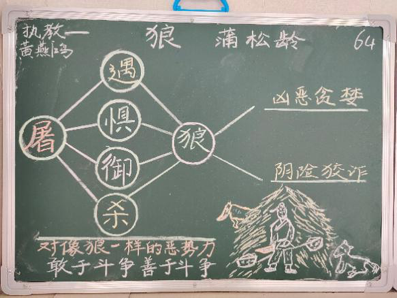 执教—
黄燕鸣
狼 蒲松龄 64
屠
遇
惧
御
杀
狼
凶恶贪婪
阴险狡诈
对像狼一样的恶势力
敢于斗争善于斗争